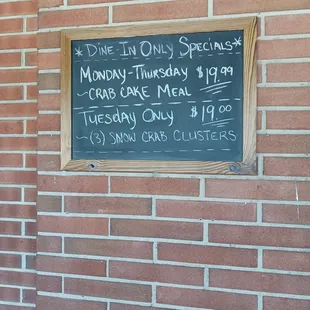 *Dine In Only Specials*
Monday-Thursday $19.99
~Crab Cake Meal
Tuesday Only $19.00
~(3) Snow Crab Clusters